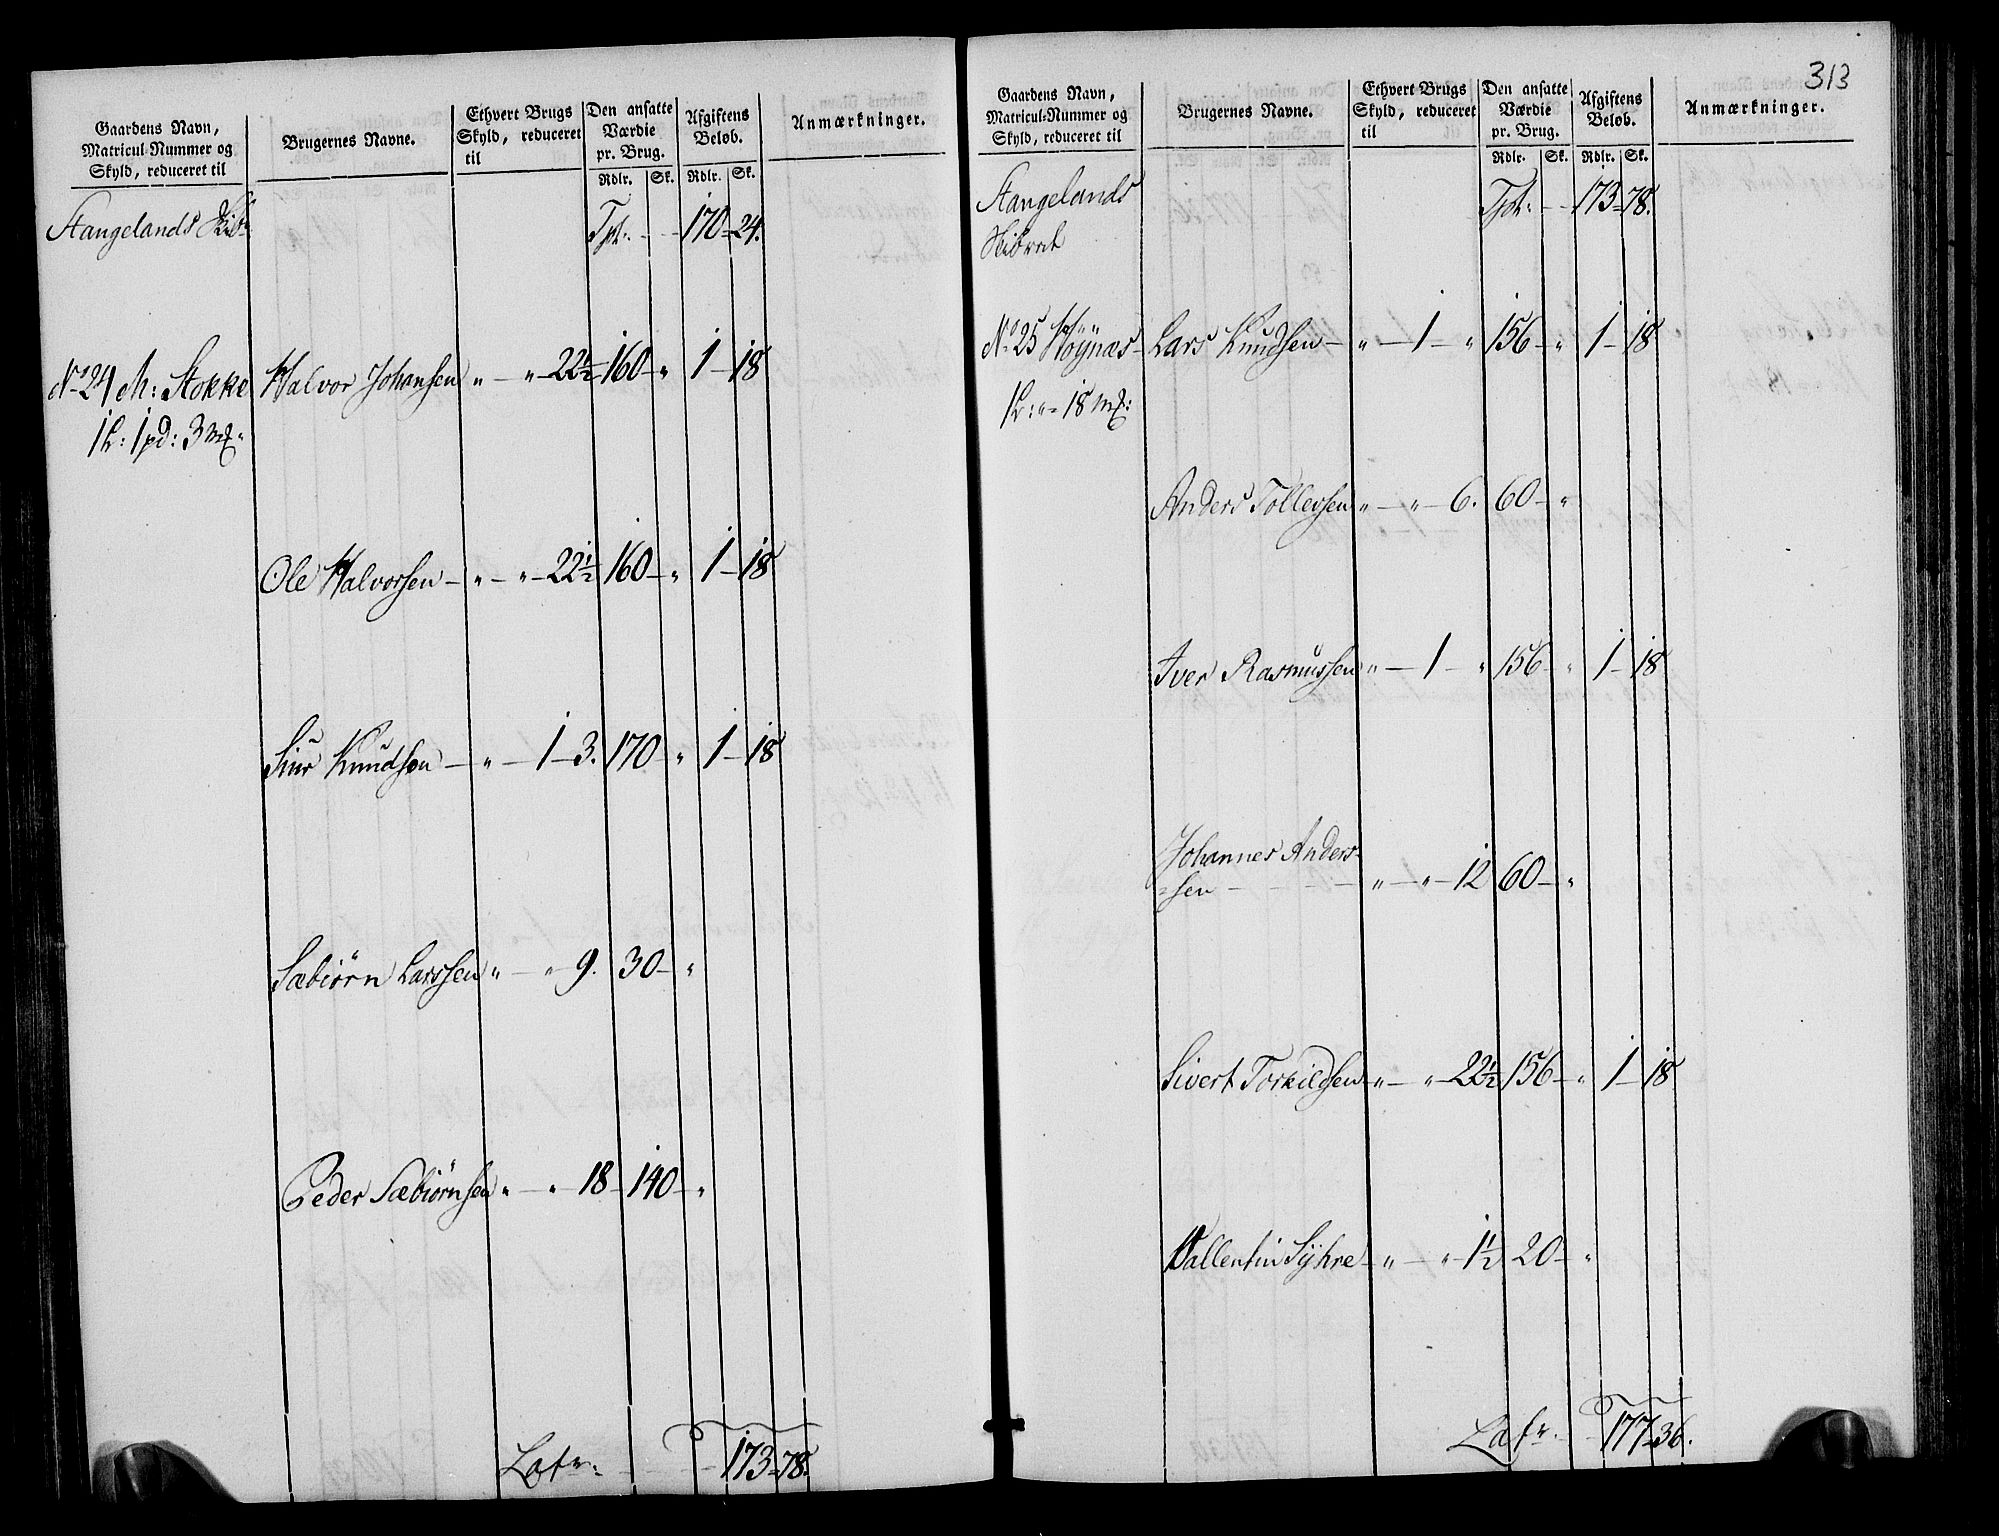 Gaardens Navn,
Matricul-Nummer og
Skyld, reduceret til
Brugernes Navne.
Ethvert Brugs
Skyld, reduceret
til
Den ansatte
Værdie
pr. Brug.
Rdlr. Sk.
Afgiftens
Beløb.
Rdlr. Sk.
Anmærkninger.
Stangelands Skib-
Tpt: - - 170 - 24.
No 24 M: Stokke Halvor Johansen „ - „ - 22½ 160 - „ 1 - 18
1 L: 1 pd: 3 mk.
Ole Halvorsen - „ - „ - 22½ 160 - „ 1 - 18
Siur Knudsen - „ - 1 - 3. 170 „ 1 - 18
Sæbiørn Larssen „ - „ 9. 30 - „
Peder Sæbiørnsen „ - „ 18 - 140 - „
Latr: - - 173 - 78.
313
Gaardens Navn,
Matricul-Nummer og
Skyld, reduceret til
Brugernes Navne.
Ethvert Brugs
Skyld, reduceret
til
Den ansatte
Værdie
pr. Brug.
Rdlr. Sk.
Afgiftens
Beløb.
Rdlr. Sk.
Anmærkninger.
Stangelands
Skibret
Tpt: - - 173 - 78.
No 25 Høynæs - Lars Knudsen - „ - 1 - „ 156 - „ 1 - 18
1 L: „ - 18 mk:
Anders Tollevsen „ - „ - 6. 60 - „
Iver Rasmussen „ - 1 - „ 156 - „ 1 - 18
Johannes Anders-
-sen - - - - „ - „ - 12 60 - „
Sivert Torkildsen - „ - „ - 22½ 156 - „ 1 - 18
Vallentin Sÿhre - „ - „ - 1½ 20 - „
Latr. - 177 - 36.